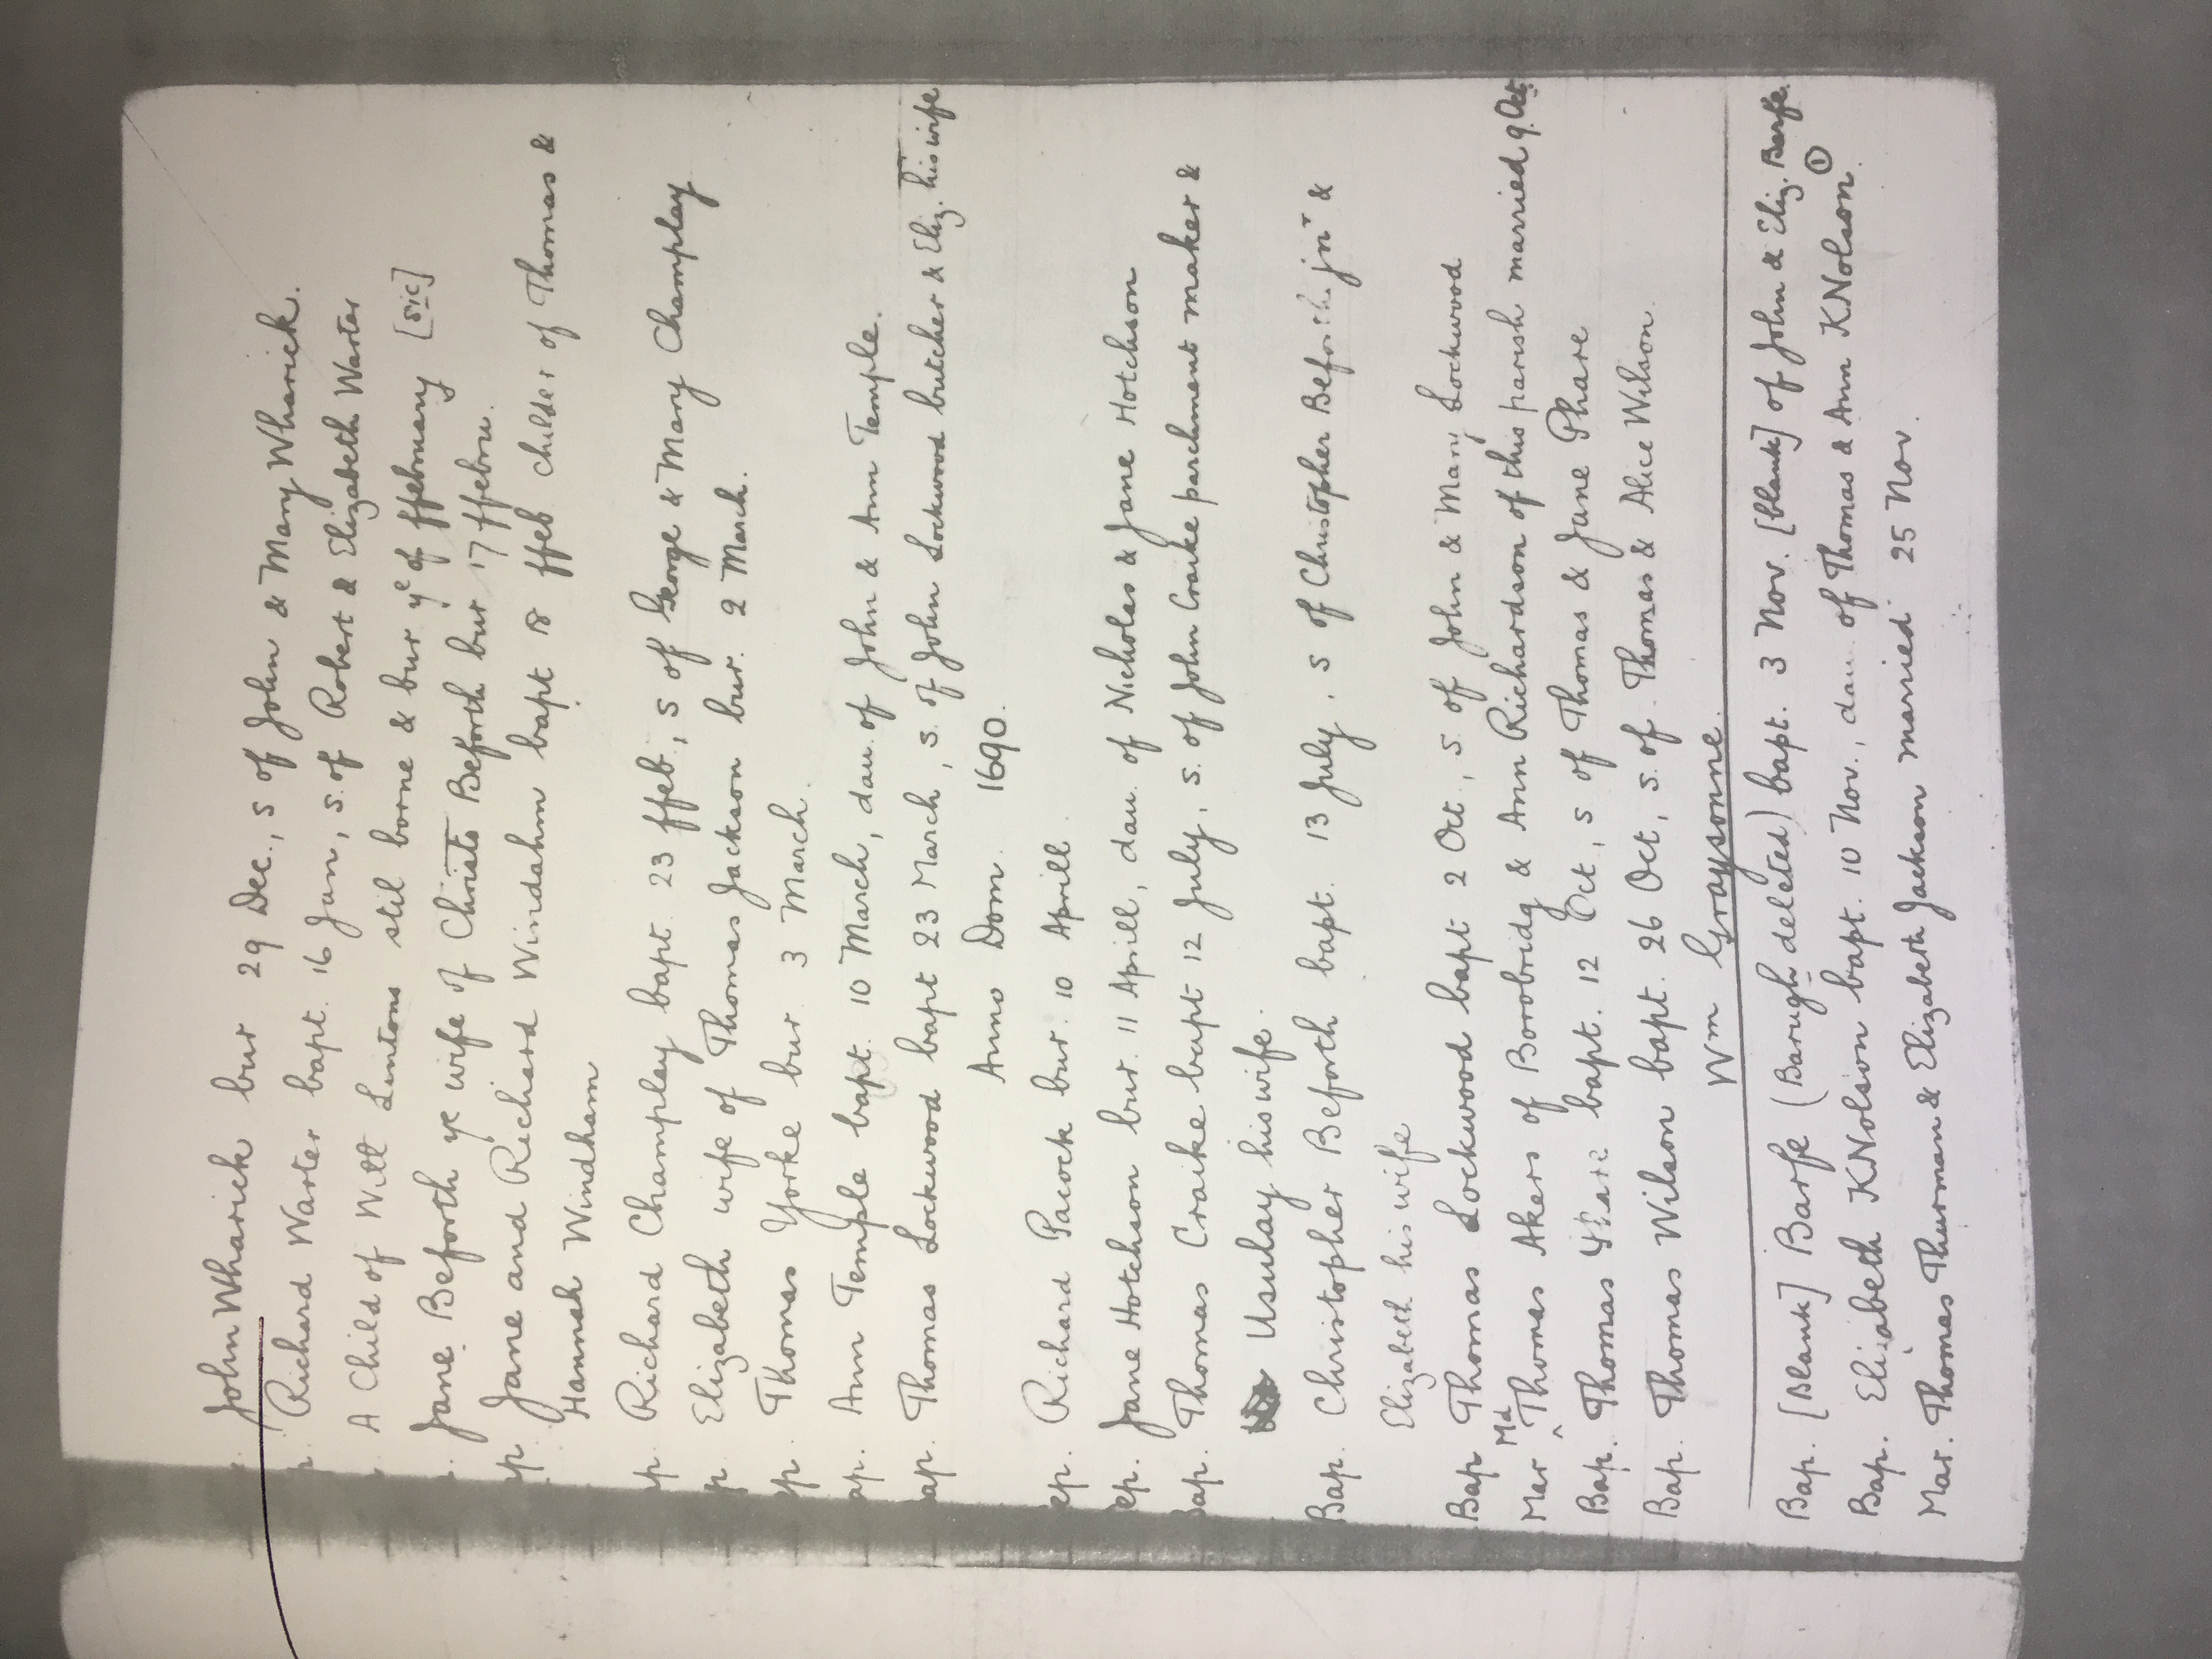 John Wharick bur 29 Dec., s of John & Mary Wharick.
p. Richard Warter bapt. 16 Jan, s. of Robert & Elizabeth Warter
A Child of Will Lintons stil borne & bur yᵉ of ffebruary [sic]
Jane Beforth ye wife of Christo Beforth bur 17 ffebru.
ap Jane and Richard Windahm bapt 18 ffeb childer of Thomas &
Hannah Windham
ap. Richard Champlay bapt. 23 ffeb., s of George & Mary Champlay
p Elizabeth wife of Thomas Jackson bur. 2 March.
ep. Thomas Yorke bur. 3 March.
ap. Ann Temple bapt. 10 March, dau. of John & Ann Temple.
ap. Thomas Lockwood bapt 23 March, s. of John Lockwood butcher & Eliz. his wife
Anno Dom. 1690.
ep. Richard Pacock bur. 10 Aprill.
ep. Jane Hotchson bur. 11 Aprill, dau. of Nicholas & Jane Hotchson
Bap. Thomas Craike bapt 12 July, s. of John Craike parchment maker &
Usulay his wife.
Bap. Christopher Beforth bapt. 13 July, s of Christopher Beforth jnʳ &
Elizabeth his wife
Bap Thomas Lockwood bapt 2 Oct, s. of John & Mary Lockwood
Mar Md Thomas Akers of Boroobridg & Ann Richardson of this parish married 9 Oct.
Bap. Thomas bapt. 12 Oct, s of Thomas & Jane Phare
Bap. Thomas Wilson bapt. 26 Oct, s. of Thomas & Alice Wilson.
Wm Graysonne.
Bap. [Blank] Barfe (Barugh deleted) bapt. 3 Nov. [blank] of John & Eliz. Barfe.
Bap. Elizabeth KNolson bapt. 10 Nov., dau. of Thomas & Ann KNolson ①.
Mar. Thomas Thurman & Elizabeth Jackson married 25 Nov.